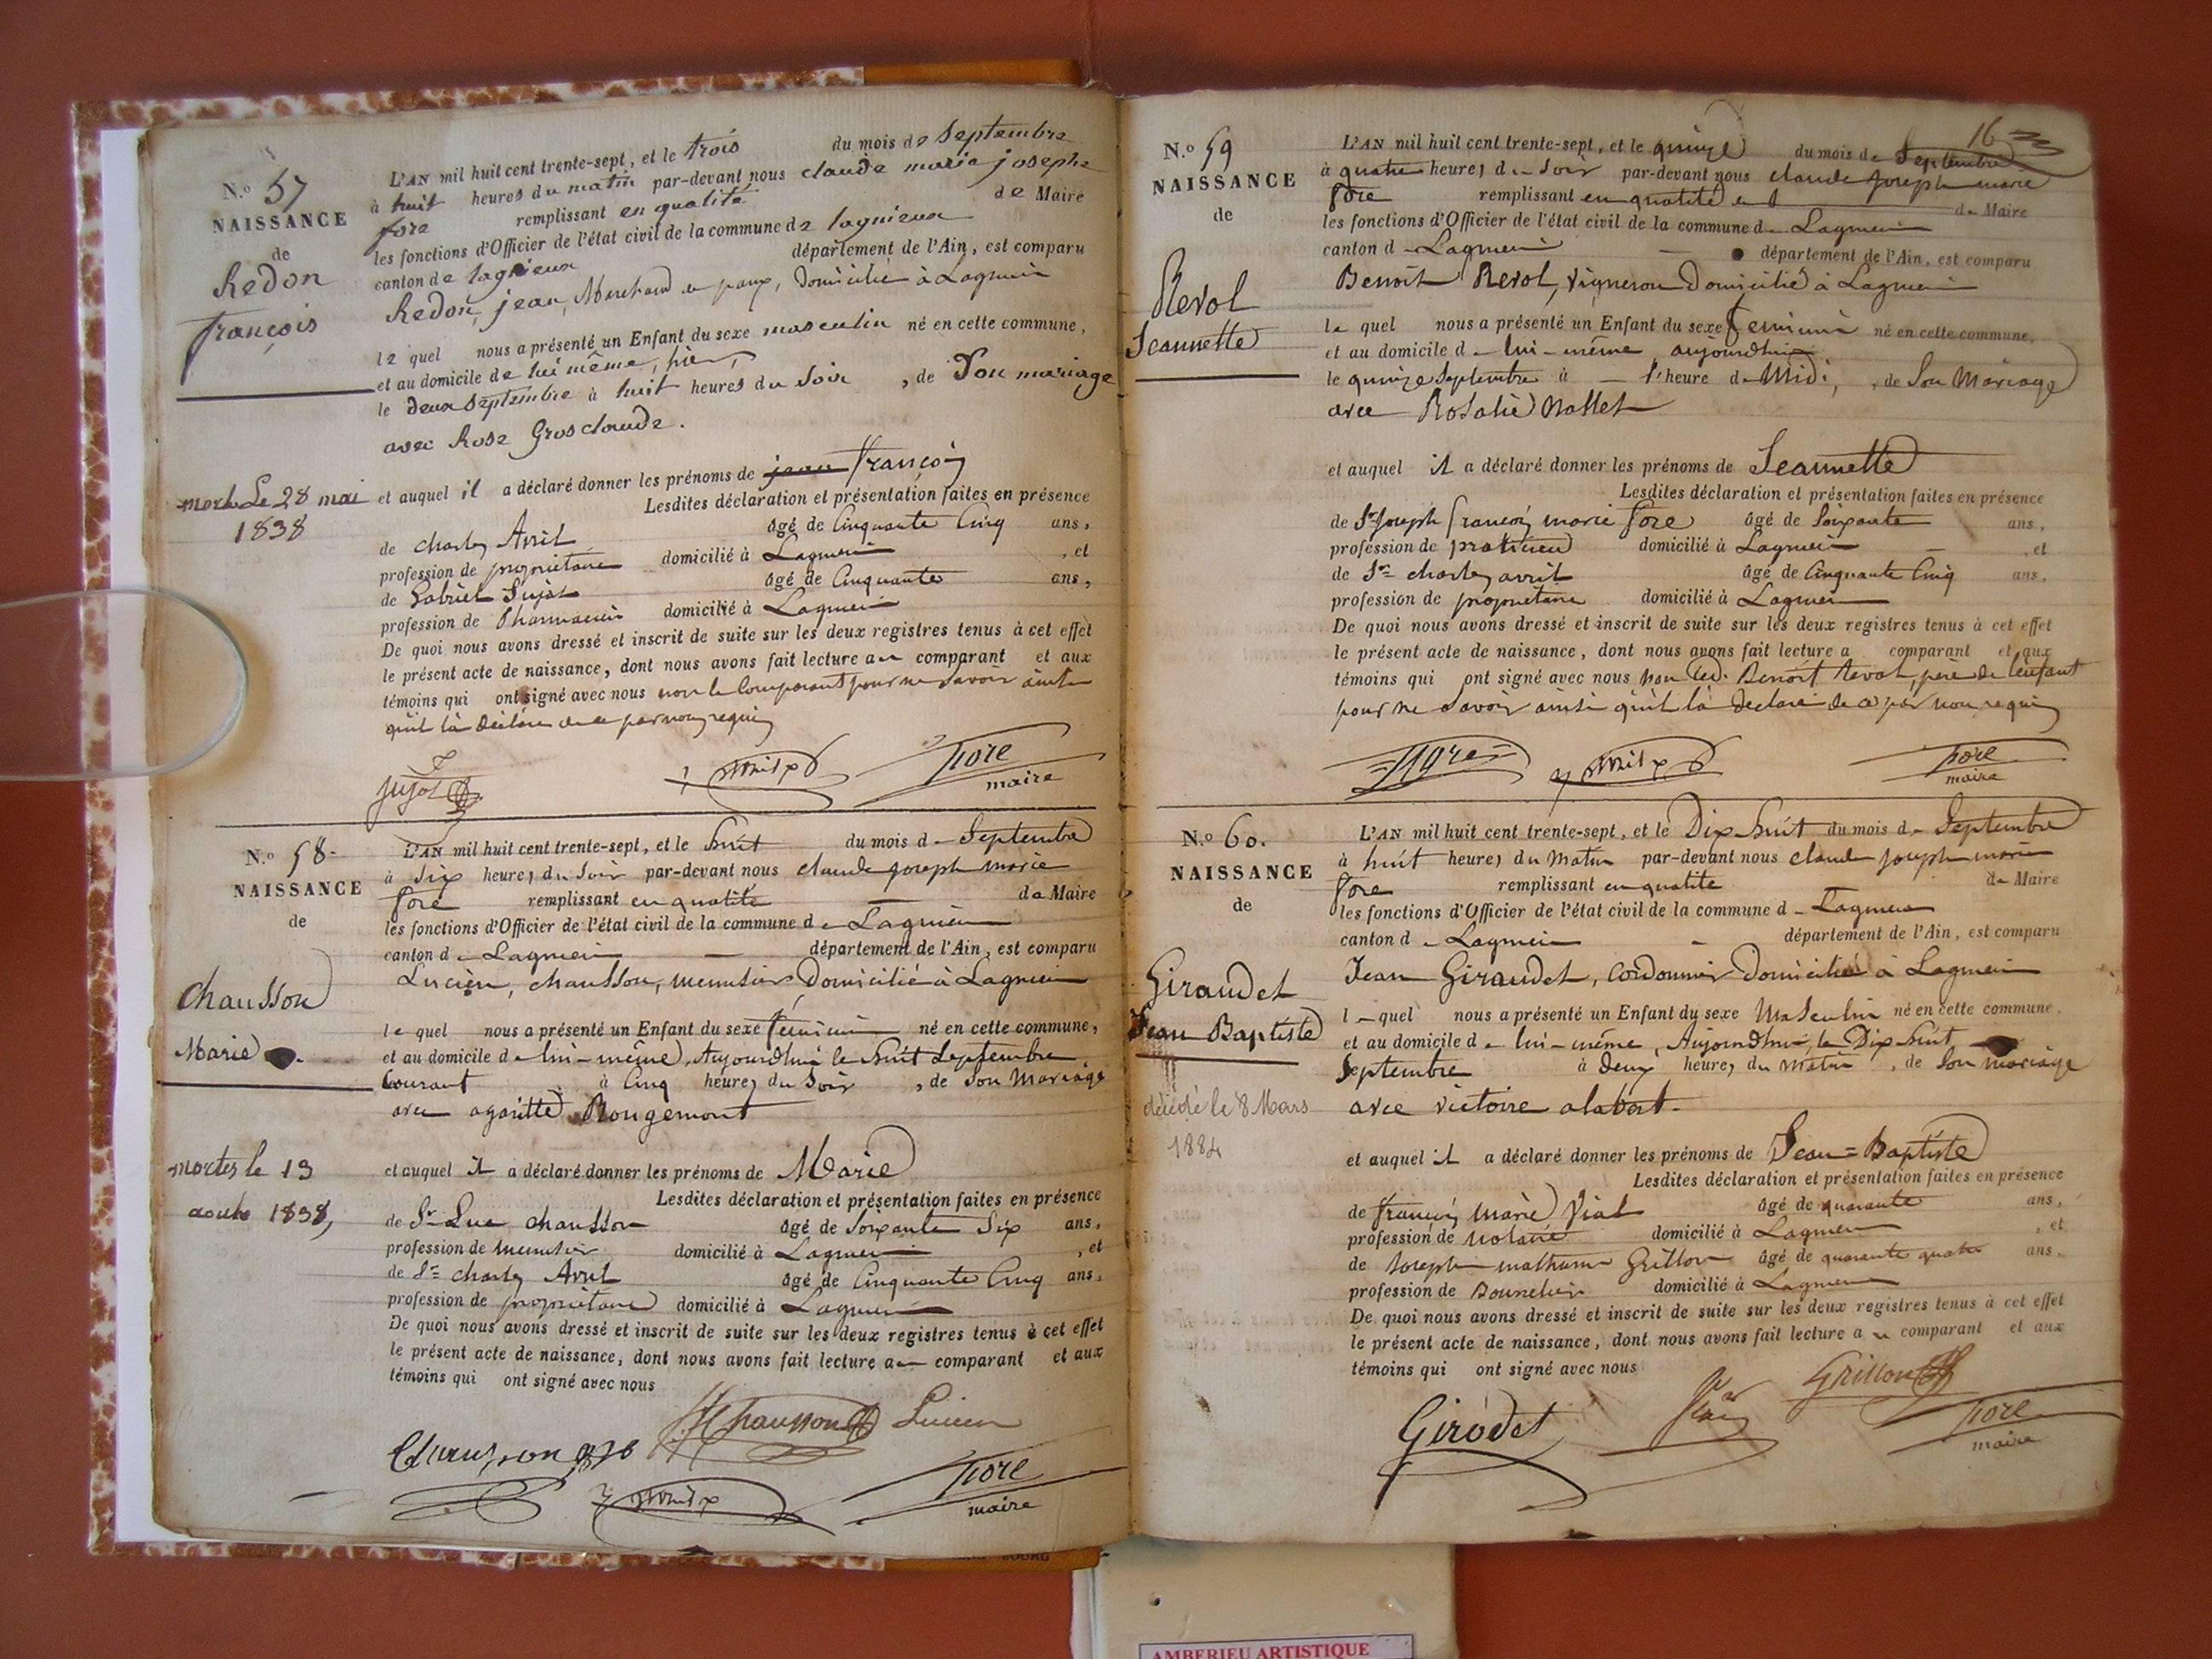 N.o 57
NAISSANCE
de
Redon
françois
mort Le 28 mai
1838
L'AN mil huit cent trente-sept, et le trois du mois de Septembre
à huit heures du matin par-devant nous claude marie josephe
fore remplissant en qualité de Maire
les fonctions d'Officier de l'état civil de la commune de lagnieux
canton de lagnieux département de l'Ain, est comparu
Redon, jean, Marchand de peaux, Domicilié à Lagnieu
le quel nous a présenté un Enfant du sexe masculin né en cette commune,
et au domicile de lui même, hier,
le deux septembre à huit heures du Soir, de Son mariage
avec Rose Grosclaude.
et auquel il a déclaré donner les prénoms de jean françois
Lesdites déclaration et présentation faites en présence
de charles Avril âgé de Cinquante Cinq ans,
profession de propriétaire domicilié à Lagnieu, et
de Gabriel Sujat âgé de Cinquante ans,
profession de Pharmacien domicilié à Lagnieu
De quoi nous avons dressé et inscrit de suite sur les deux registres tenus à cet effet
le présent acte de naissance, dont nous avons fait lecture au comparant et aux
témoins qui ont signé avec nous non le Comparant pour ne Savoir ainsi
qu'il l'a déclaré de ce par nous requis
fore
maire
N.o 58.
NAISSANCE
de
chausson
Marie
mortes le 13
août 1838,
L'AN mil huit cent trente-sept, et le huit du mois de Septembre
à Six heures du Soir par-devant nous claude joseph marie
fore remplissant en qualité de Maire
les fonctions d'Officier de l'état civil de la commune de Lagnieu
canton de Lagnieu département de l'Ain, est comparu
Lucien, chausson, menuisier, Domicilié à Lagnieu
le quel nous a présenté un Enfant du sexe feminin né en cette commune,
et au domicile de lui-même, Aujourdhui le huit Septembre
Courant à Cinq heures du Soir, de Son Mariage
avec agaritte Rougemont
et auquel il a déclaré donner les prénoms de Marie
Lesdites déclaration et présentation faites en présence
de Sr Luc chausson âgé de Soixante Six ans,
profession de menuisier domicilié à Lagnieu, et
de Sr charles Avril âgé de Cinquante Cinq ans,
profession de propriétaire domicilié à Lagnieu
De quoi nous avons dressé et inscrit de suite sur les deux registres tenus à cet effet
le présent acte de naissance, dont nous avons fait lecture au comparant et aux
témoins qui ont signé avec nous
Chausson Lucien
Chausson
fore
maire
16
N.o 59
NAISSANCE
de
Revol
Jeannette
L'AN mil huit cent trente-sept, et le quinze du mois de Septembre
à quatre heures du Soir par-devant nous claude joseph marie
fore remplissant en qualité de Maire
les fonctions d'Officier de l'état civil de la commune de Lagnieu
canton de Lagnieu département de l'Ain, est comparu
Benoit Revol, Vigneron Domicilié à Lagnieu
le quel nous a présenté un Enfant du sexe feminin né en cette commune,
et au domicile de lui-même aujourdhui
le quinze Septembre à l'heure de Midi, de Son Mariage
avec Rosalie Mallet
et auquel il a déclaré donner les prénoms de Jeannette
Lesdites déclaration et présentation faites en présence
de Sr Joseph françois marie fore âgé de Soixante ans,
profession de praticien domicilié à Lagnieu, et
de Sr charles avril âgé de Cinquante Cinq ans,
profession de propriétaire domicilié à Lagnieu
De quoi nous avons dressé et inscrit de suite sur les deux registres tenus à cet effet
le présent acte de naissance, dont nous avons fait lecture a comparant et aux
témoins qui ont signé avec nous non led. Benoit Revol, père de l'enfant
pour ne Savoir ainsi qu'il l'a déclaré de ce par nous requis
fore
fore
maire
N.o 60.
NAISSANCE
de
Giraudet
Jean Baptiste
décédé le 8 Mars
1884
L'AN mil huit cent trente-sept, et le Dix huit du mois de Septembre
à huit heures du Matin par-devant nous claude joseph marie
fore remplissant en qualité de Maire
les fonctions d'Officier de l'état civil de la commune de Lagnieu
canton de Lagnieu département de l'Ain, est comparu
Jean Giraudet, Cordonnier Domicilié à Lagnieu
le quel nous a présenté un Enfant du sexe Masculin né en cette commune,
et au domicile de lui-même, Aujourdhui le Dix huit
Septembre à deux heures du Matin, de Son mariage
avec victoire alabert.
et auquel il a déclaré donner les prénoms de Jean=Baptiste
Lesdites déclaration et présentation faites en présence
de françois Marie Vial âgé de quarante ans,
profession de Notaire domicilié à Lagnieu, et
de Joseph mathurin Grillon âgé de quarante quatre ans,
profession de Bourrelier domicilié à Lagnieu
De quoi nous avons dressé et inscrit de suite sur les deux registres tenus à cet effet
le présent acte de naissance, dont nous avons fait lecture au comparant et aux
témoins qui ont signé avec nous
Grillon
Girodet
fore
maire
AMBERIEU ARTISTIQUE